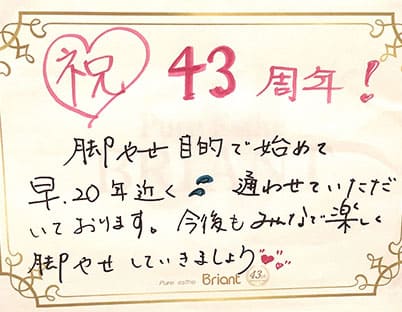 祝 43周年!
脚やせ目的で始めて
早.20年近く 通わせていただだ
いております。今後もみんなで楽しく
脚やせしていきましょう
Pure esthe Briant 43